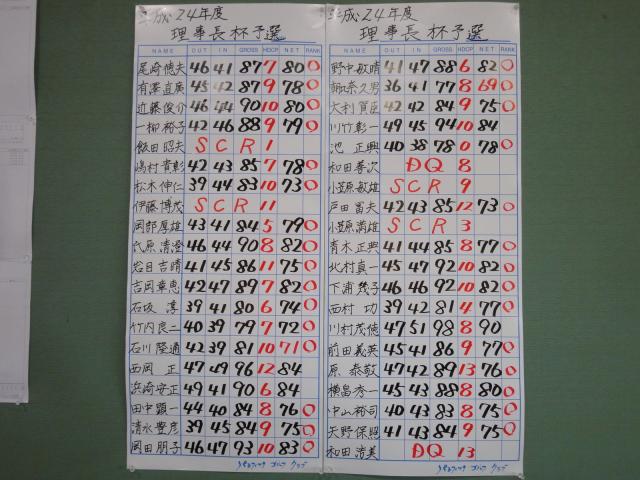 平成24年度
理事長杯予選
NAME OUT IN GROSS HDCP NET RANK
尾崎 夫 46 41 87 7 80 ○
有澤直廣 45 42 87 9 78 ○
近藤俊介 46 44 90 10 80 ○
一柳裕子 42 46 88 9 79 ○
飯田昭夫 SCR 1
嶋村貴彰 42 43 85 7 78 ○
松木伸仁 39 44 83 10 73 ○
伊藤博茂 SCR 11
岡部厚雄 43 41 84 5 79 ○
原清澄 46 44 90 8 82 ○
岩目吉晴 41 45 86 11 75 ○
吉岡章恵 42 47 89 7 82 ○
石坂 淳 39 41 80 6 74 ○
竹内良二 40 39 79 7 72 ○
石川隆通 42 39 81 10 71 ○
西岡 正 47 49 96 12 84
浜崎安正 49 41 90 6 84
田中顕一 44 40 84 8 76 ○
清水豊彦 39 45 84 9 75 ○
岡田朋子 46 47 93 10 83 ○
平成24年度
理事長杯予選
NAME OUT IN GROSS HDCP NET RANK
野中敏晴 41 47 88 6 82 ○
朝奈久男 36 41 77 8 69 ○
大利賀臣 42 42 84 9 75 ○
川竹彰一 49 45 94 10 84
池 正興 40 38 78 0 78 ○
和田善次 DQ 8
小笠原敏雄 SCR 9
戸田冨夫 42 43 85 12 73 ○
小笠原満雄 SCR 3
青木正典 41 44 85 8 77 ○
北村真一 45 47 92 10 82 ○
下浦幾子 46 46 92 10 82 ○
西村 功 39 42 81 4 77 ○
川村茂徳 47 51 98 8 90
前田義英 45 41 86 9 77 ○
原 泰敬 47 42 89 13 76 ○
横畠秀一 45 43 88 8 80 ○
中山裕司 40 43 83 8 75 ○
矢野保照 41 43 84 9 75 ○
和田清美 DQ 13
パシフィックゴルフクラブ